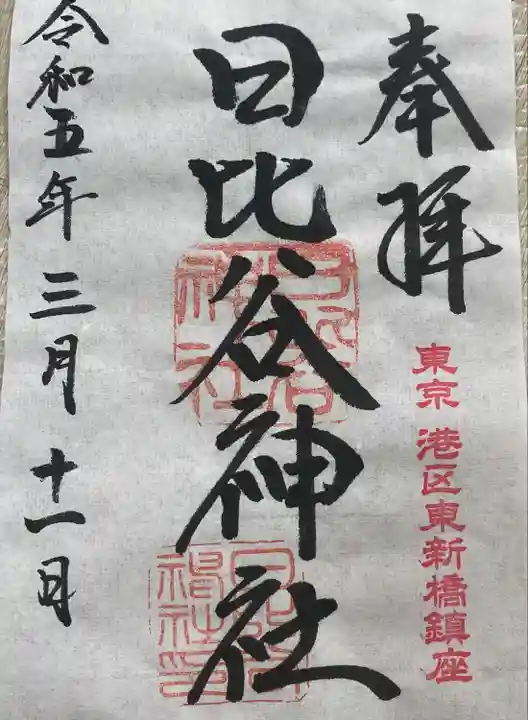 奉拝
東京 港区東新橋鎮座
日比谷神社
令和五年 三月 十一日